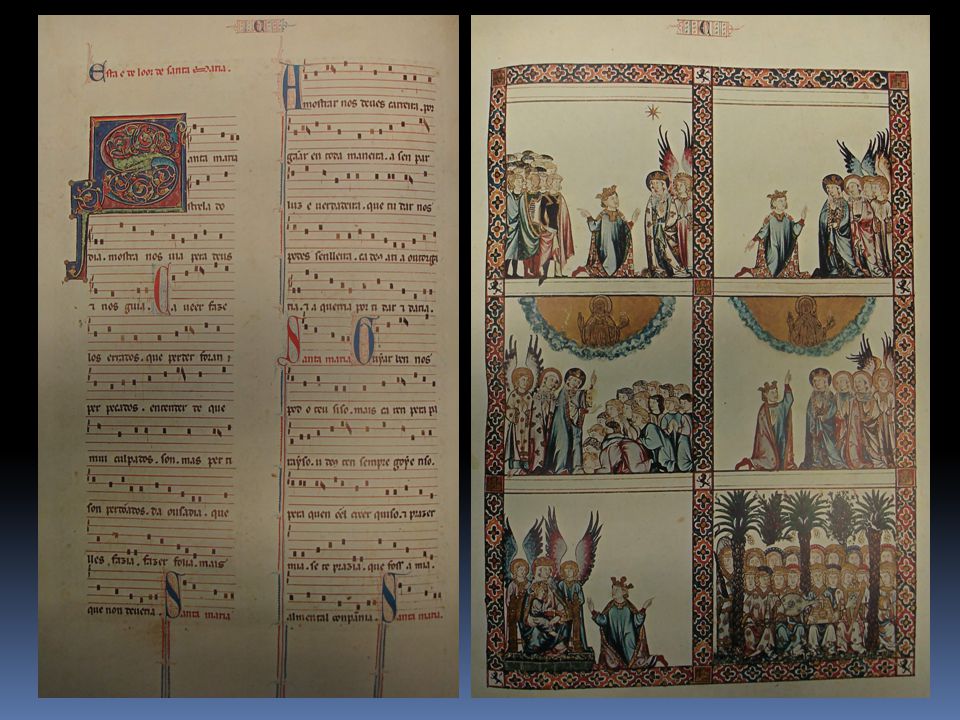 Esta e de loor de santa Maria.
Santa maria
strela do
dia. mostra nos uia pera deus
⁊ nos guia. Ca ueer faze
los errados. que perder foran ⁊
per pecados. entender de que
mui culpados. son. mas per ti
son perdõados. da ousadia. que
lles. fazia. fazer folia. mais
que non deueria. Santa maria
Amostrar nos deues carreira. por
gãar en toda maneira. a sen par
luz e uerdadeira. que tu dar nos
podes senlleira. ca ati a outorga
ria. ⁊ a querria por ti dar ⁊ daria.
Santa maria Guyar ben nos
pod o teu siso. mais ca ren pera pa
rayso. u ten sempre goye riso.
pera quen creer quiso. ⁊ prazer
mia. se te prazia. que foss a mia.
almental conpãnia. Santa maria.